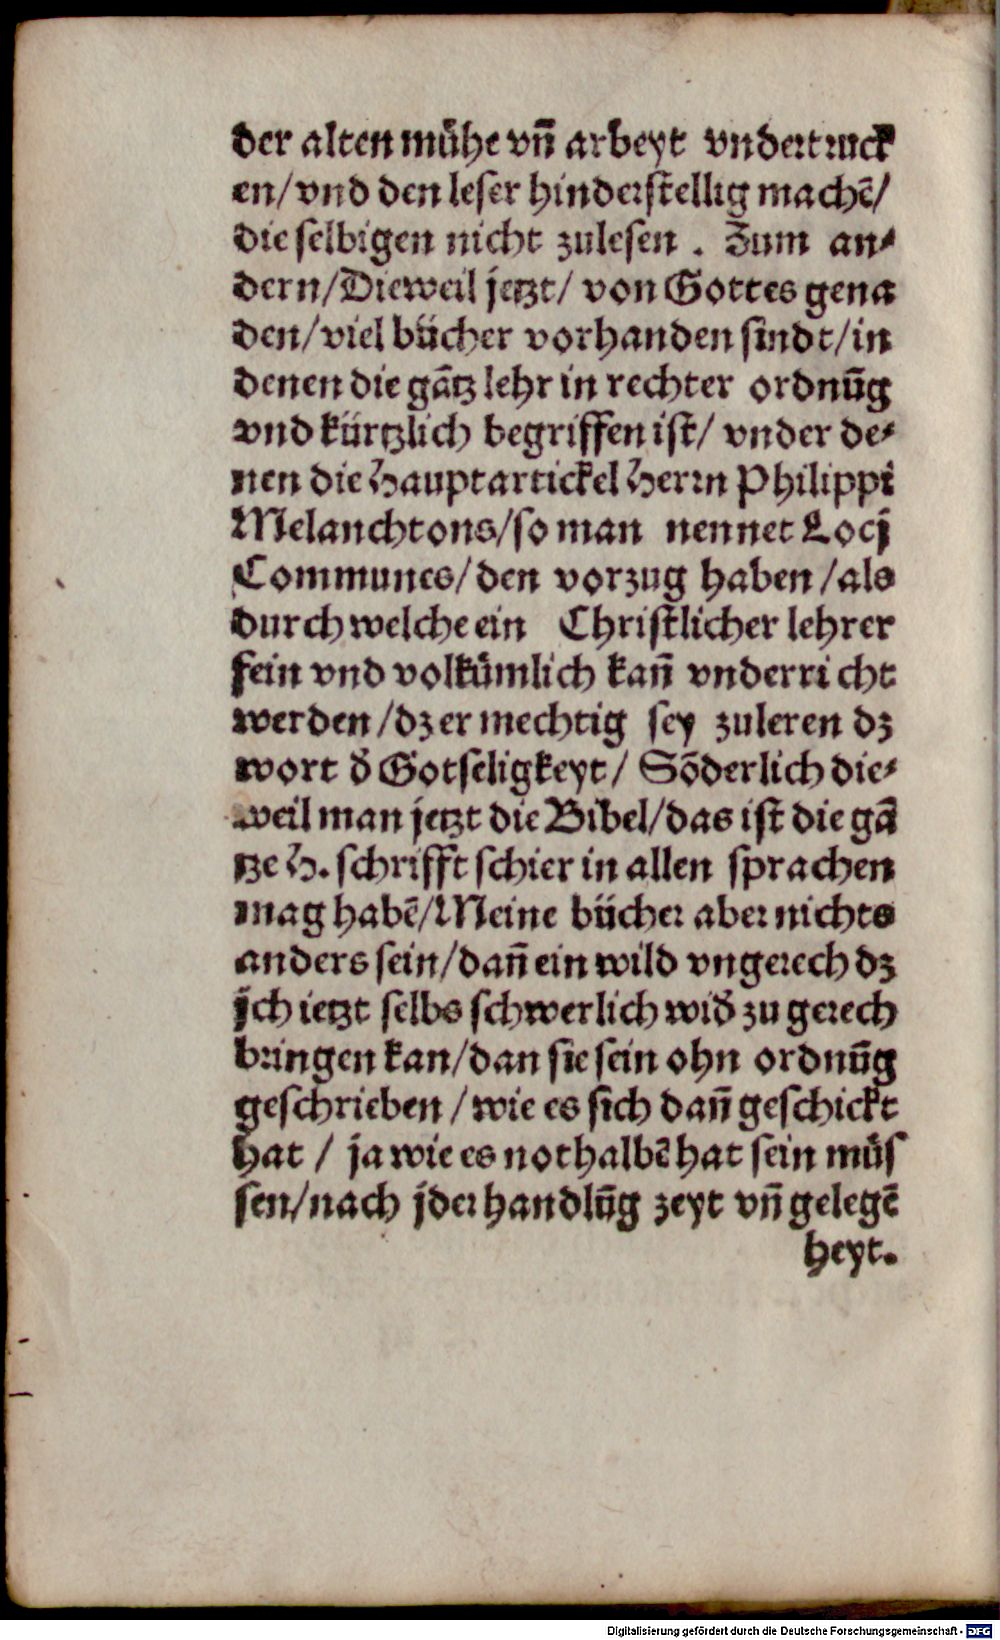 der alten mühe vn̄ arbeyt vndertruck
en/ vnd den leser hinderstellig machē/
die selbigen nicht zulesen . Zum an⸗
dern/ Dieweil jetzt/ von Gottes gena
den/ viel bücher vorhanden sindt/ in
denen die gātz lehr in rechter ordnūg
vnd kürtzlich begriffen ist/ vnder de⸗
nen die Hauptartickel Herrn Philippi
Melanchtons/ so man nennet Locj
Communes/ den vorzug haben/ als
durch welche ein Christlicher lehrer
fein vnd volkümlich kan̄ vnderricht
werden/ dz er mechtig sey zuleren dz
wort d̄ Gotseligkeyt/ Sōderlich die⸗
weil man jetzt die Bibel/ das ist die gā
tze H. schrifft schier in allen sprachen
mag habē/ Meine bücher aber nichts
anders sein/ dan̄ ein wild vngerech dz
jch ietzt selbs schwerlich wid̄ zu gerech
bringen kan/ dan sie sein ohn ordnūg
geschrieben/ wie es sich dan̄ geschickt
hat / ja wie es nothalbē hat sein müs
sen/ nach jder handlūg zeyt vn̄ gelegē
heyt.
Digitalisierung gefördert durch die Deutsche Forschungsgemeinschaft - DFG